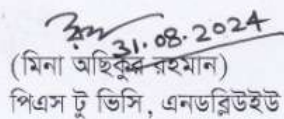 31.08.2024
(মিনা অছিকুর রহমান)
পিএস টু ভিসি, এনডব্লিউইউ